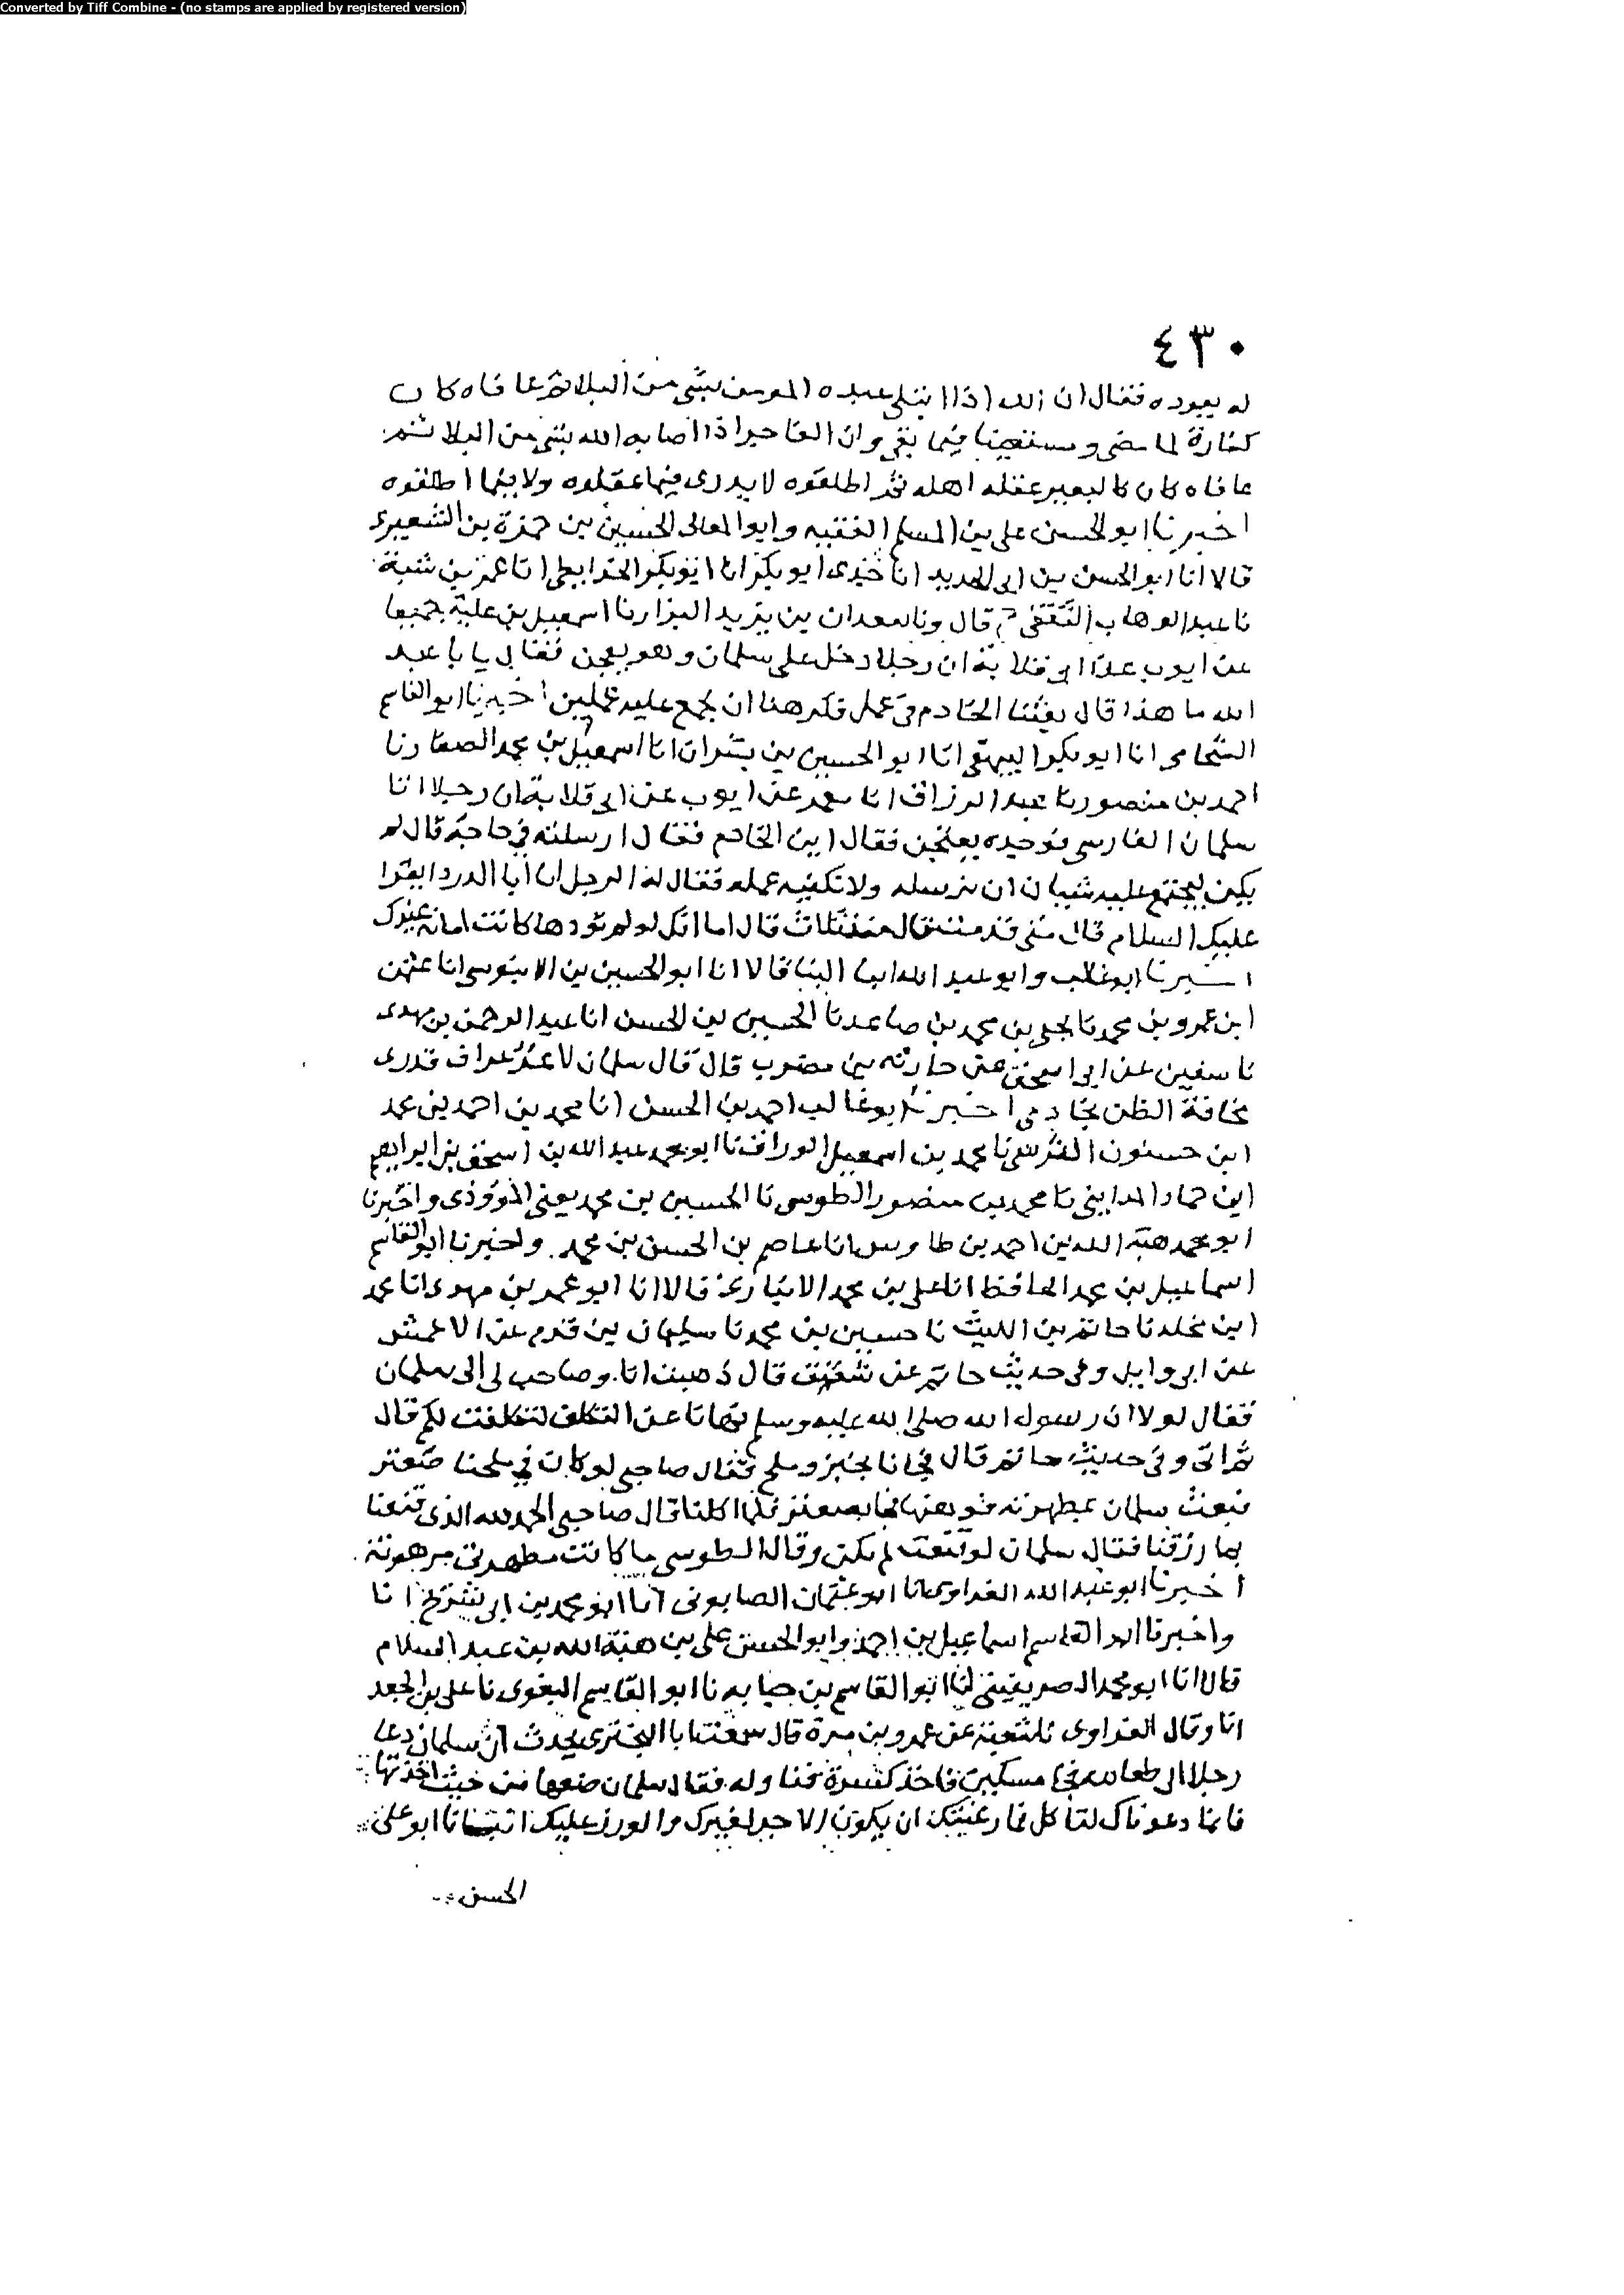 Converted by Tiff Combine - (no stamps are applied by registered version)
٤٣٠
له يعوده فقال ان الله اذا ابتلى عبده المومن بشى من البلا ثم عافاه كان
كفارة لما مضى ومستعتبا فيما بقى وان الفاجر اذا اصابه الله بشى من البلا ثم
عافاه كان كالبعير عقله اهله ثم اطلقوه لا يدرى فيما عقلوه ولا فيما اطلقوه
اخبرنا ابو الحسن على بن المسلم الفقيه وابو المعالى الحسين بن حمزة بن الشعيرى
قالا انا ابو الحسن بن ابى الحديد انا جدى ابو بكر انا ابو بكر الخرايطى انا عمر بن شبة
نا عبد الوهاب الثقفى ح قال ونا سعدان بن يزيد البزار نا اسمعيل بن علية جميعا
عن ايوب عن ابى قلابة ان رجلا دخل على سلمان وهو يعجن فقال يا با عبد
الله ما هذا قال بعثنا الخادم فى عمل فكرهنا ان نجمع عليه عملين اخبرنا ابو القاسم
الشحامى انا ابو بكر البيهقى انا ابو الحسين بن بشران انا اسمعيل بن محمد الصفار نا
احمد بن منصور نا عبد الرزاق انا معمر عن ايوب عن ابى قلابة ان رجلا اتا
سلمان الفارسى فوجده يعتجن فقال اين الخادم فقال ارسلته فى حاجة قال لم
يكن ليجتمع عليه شيان ان نرسله ولا نكفيه عمله فقال له الرجل ان ابا الدردا يقرا
عليك السلام قال متى قدمت قال منذ ثلاث قال اما انك لو لم تودها كانت امانة عندك
اخبرنا ابو غالب وابو عبد الله ابنا البنا قالا انا ابو الحسين بن الابنوسى انا عثمن
ابن عمرو بن محمد نا يحيى بن محمد بن صاعد نا الحسين بن الحسن انا عبد الرحمن بن مهدى
نا سفين عن ابى اسحق عن حارثة بن مضرب قال قال سلمان لاعد عراق قدرى
مخافة الظن بخادمى اخبرنا ابو غالب احمد بن الحسن انا محمد بن احمد بن محمد
ابن حسنون النرسى نا محمد بن اسمعيل الوراق نا ابو محمد عبد الله بن اسحق بن ابراهيم
ابن حماد المداينى نا محمد بن منصور الطوسى نا الحسين بن محمد يعنى المروذى واخبرنا
ابو محمد هبة الله بن احمد بن طاوس انا عاصم بن الحسن بن محمد. واخبرنا ابو القاسم
اسماعيل بن محمد الحافظ انا على بن محمد الانبارى قالا انا ابو عمر بن مهدى انا محمد
ابن مخلد نا حاتم بن الليث نا حسين بن محمد نا سليمان بن قرم عن الاعمش
عن ابى وايل وفى حديث حاتم عن شقيق قال ذهبت انا وصاحب لى الى سلمان
فقال لولا ان رسول الله صلى الله عليه وسلم نهانا عن التكلف لتكلفت لكم قال
ثم اتى وفى حديث حاتم قال فجانا بخبز وملح فقال صاحبى لو كان فى ملحنا صعتر
فبعث سلمان بمطهرته فرهنها فجا بصعتر فلما اكلنا قال صاحبى الحمد لله الذى قنعنا
بما رزقنا فقال سلمان لو قنعت لم تكن وقال الطوسى ما كانت مطهرتى مرهونة
اخبرنا ابو عبد الله الفراوى انا ابو عثمان الصابونى انا ابو محمد بن ابى شريح انا
واخبرنا ابو القاسم اسماعيل بن احمد وابو الحسن على بن هبة الله بن عبد السلام
قالا انا ابو محمد الصريفينى انا ابو القاسم بن حبابه نا ابو القاسم البغوى نا على بن الجعد
انا وقال الفراوى نا شعبة عن عمرو بن مرة قال سمعت ابا البخترى يحدث ان سلمان دعا
رجلا الى طعامه فجا مسكين فاخذ كسرة فناوله فقال سلمان ضعها من حيث اخذتها
فانما دعوناك لتاكل فما رغبتك ان يكون الاجر لغيرك والوزر عليك انبانا ابو على
الحسن